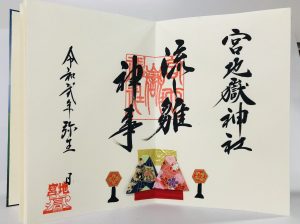 宮地嶽神社
流雛
神事
令和弐年弥生 日